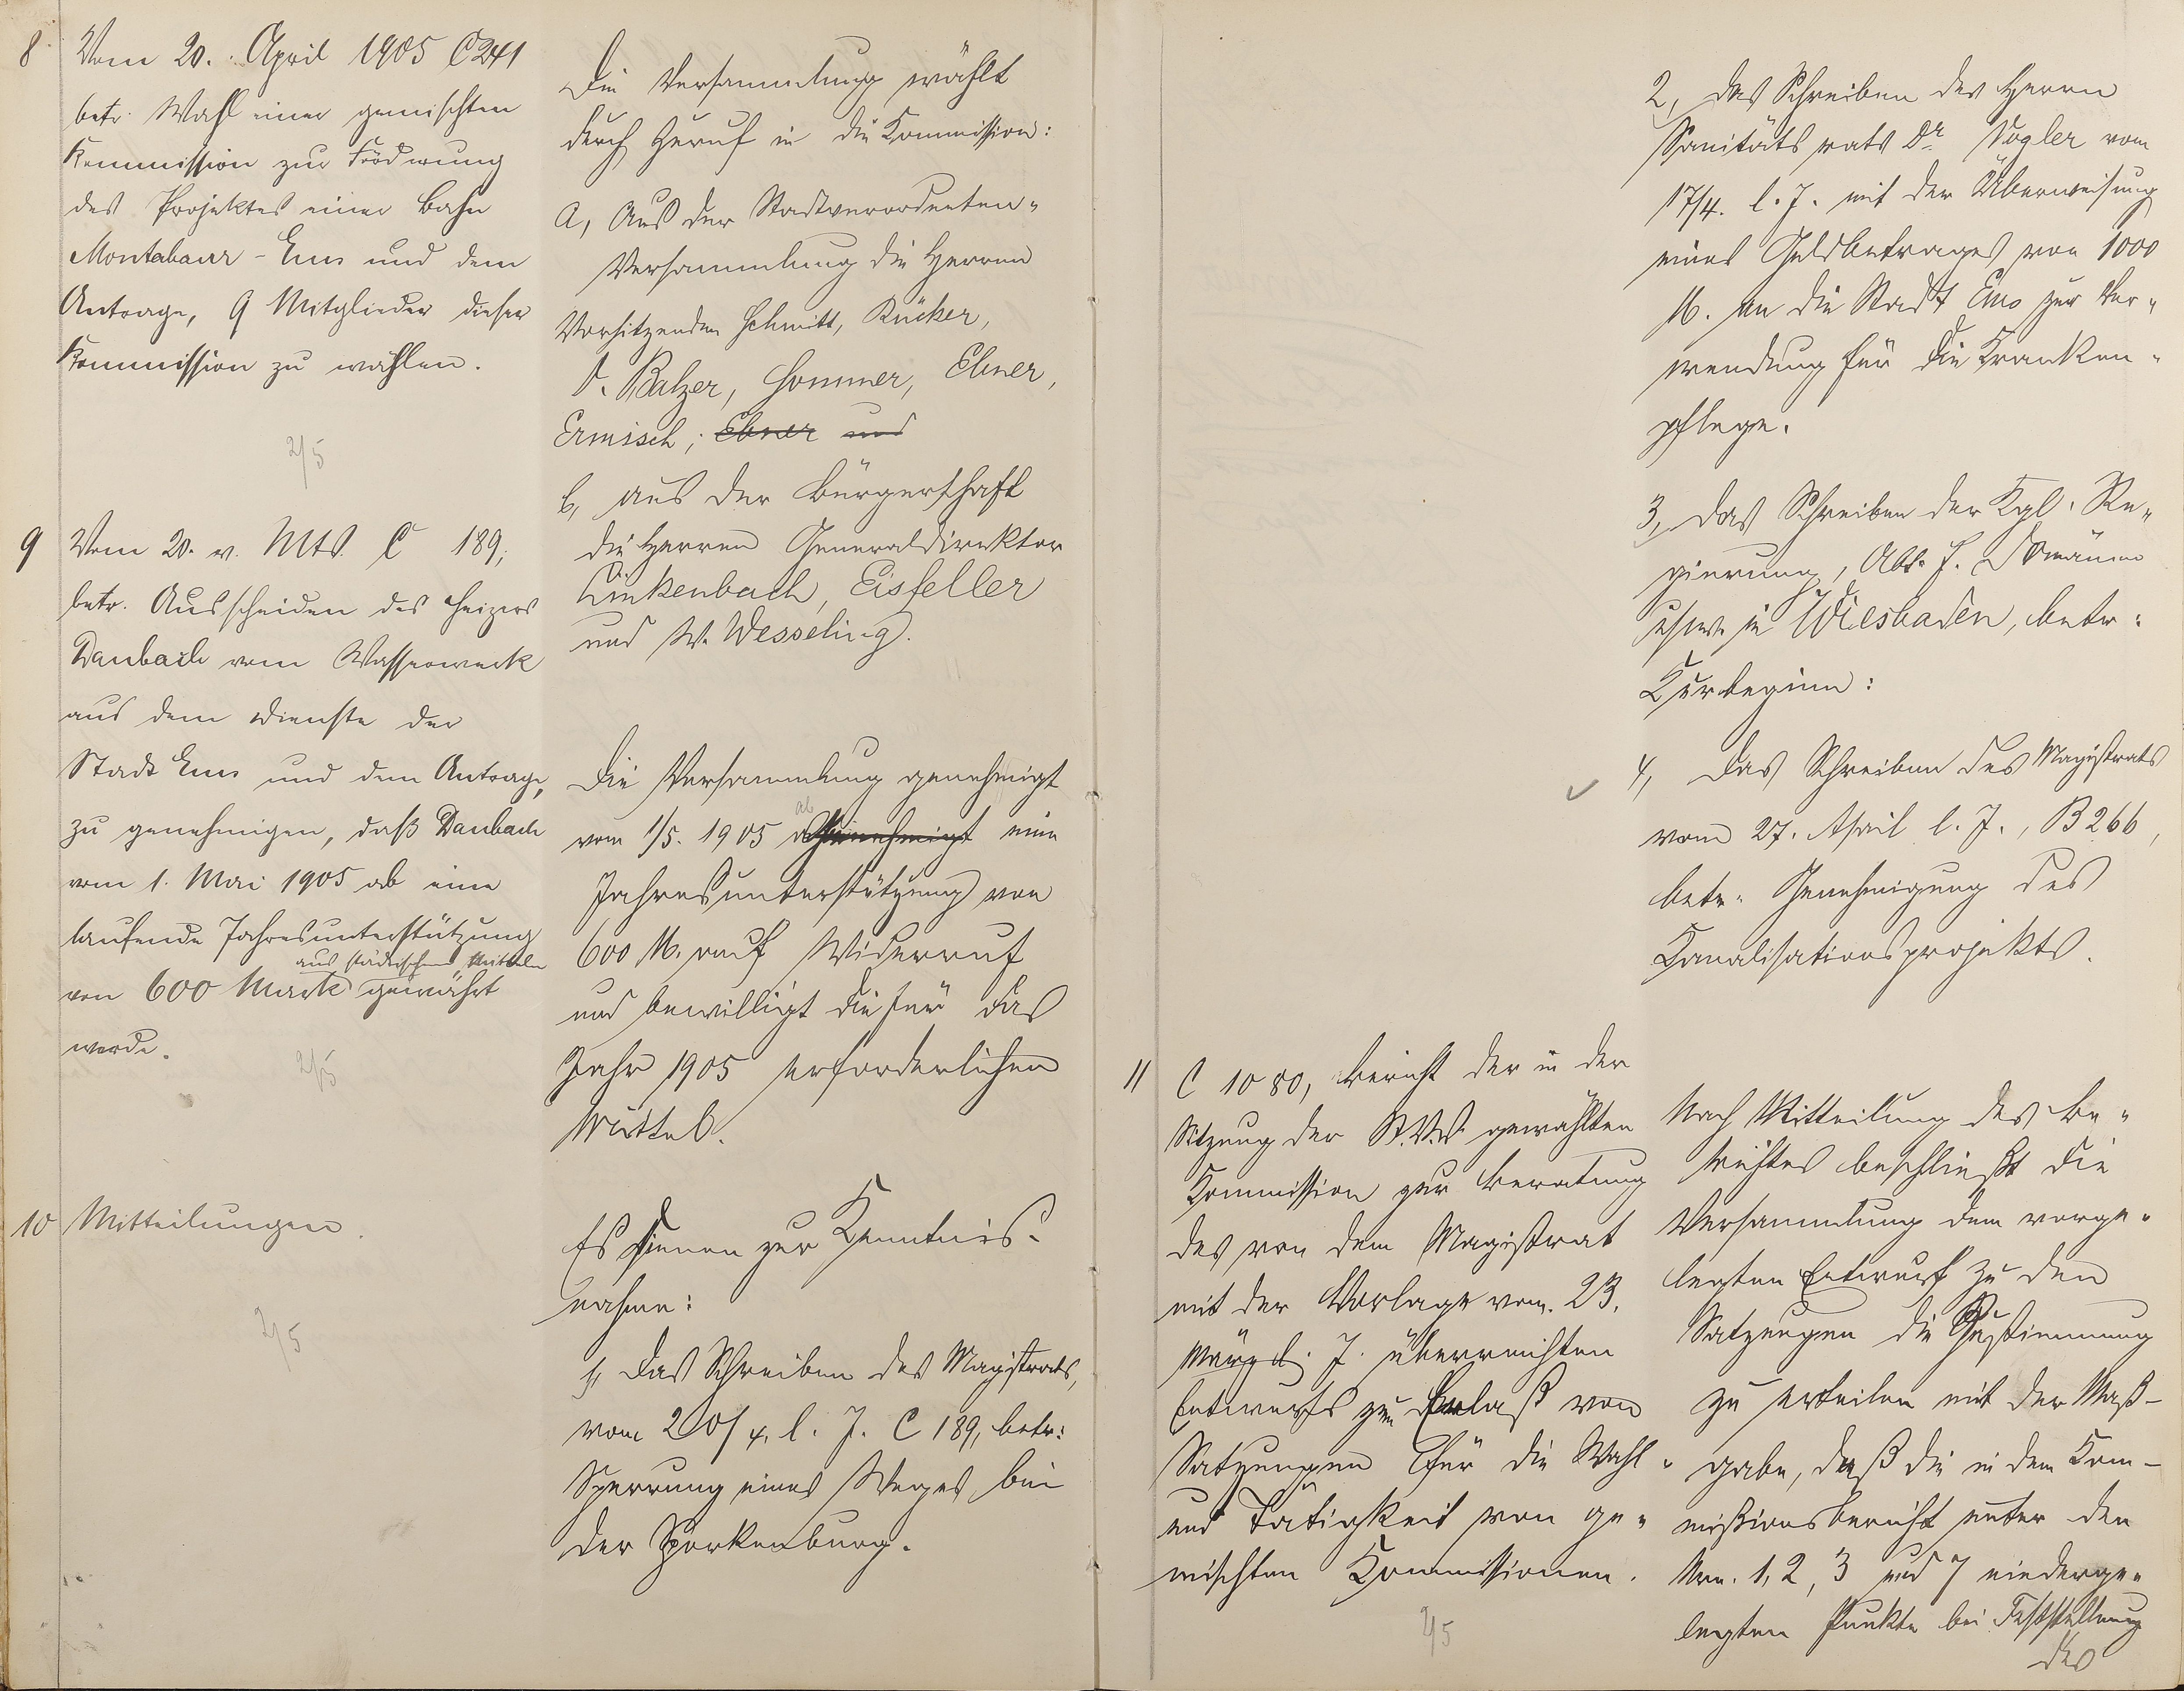 8
Vom 20. April 1905 C 241
betr. Wahl einer gemischten
Kommission zur Förderung
des Projektes einer Bahn
Montabaur - Ems und dem
Antrage, 9 Mitglieder dieser
Kommission zu wählen.
2/5
Die Versammlung wählt
durch Zuruf in die Kommission:
a, Aus der Stadtverordneten-
Versammlung die Herren
Vorsitzenden Schmitt, Rücker,
A. Balzer, Sommer, Ebner,
Ermisch; Ebner und
b, aus der Bürgerschaft
die Herren Generaldirektor
Linkenbach, Eisfeller
und W. Wesseling.
9
Vom 20. v. Mts. C 189,
betr. Ausscheiden des Heizers
Daubach vom Wasserwerk
aus dem Dienste der
Stadt Ems und dem Antrage,
zu genehmigen, daß Daubach
vom 1. Mai 1905 ab eine
laufende Jahresunterstützung
aus städtischen Mitteln
von 600 Mark gewährt
werde.
2/5
Die Versammlung genehmigt
ab
vom 1/5. 1905 genehmigt eine
Jahresunterstützung von
600 M. auf Widerruf
und bewilligt die für das
Jahr 1905 erforderlichen
Mittel.
10
Mitteilungen.
2/5
Es dienen zur Kenntnis-
nahme:
1, Das Schreiben des Magistrats,
vom 20/4. l. J. C 189, betr:
Sperrung eines Weges bei
der Sporkenburg.
2, Das Schreiben des Herrn
Sanitätsrats Dr. Vogler vom
17/4. l. J. mit der Überweisung
eines Geldbetrages von 1000
M. an die Stadt Ems zur Ver-
wendung für die Kranken-
pflege.
3, Das Schreiben der Kgl. Re-
gierung, Abt. f. Domänen
usw. in Wiesbaden, betr:
Kurbeginn:
4, Das Schreiben des Magistrats
vom 27. April l. J., B 266,
betr. Genehmigung des
Kanalisationsprojekts.
11
C 1080, Bericht der in der
Sitzung der St.V.V. gewählten
Kommission zur Beratung
des von dem Magistrat
mit der Vorlage vom 23.
März l. J. überreichten
Entwurfs zum Erlaß von
Satzungen für die Wahl-
und Tätigkeit von ge-
mischten Kommissionen.
2/5
Nach Mitteilung des Be-
richtes beschließt die
Versammlung dem vorge-
legten Entwurf zu den
Satzungen die Zustimmung
zu erteilen mit der Maß-
gabe, daß die in dem Kom-
missionsbericht unter den
Nrn. 1, 2, 3 und 7 niederge-
legten Punkte bei Feststellung
des